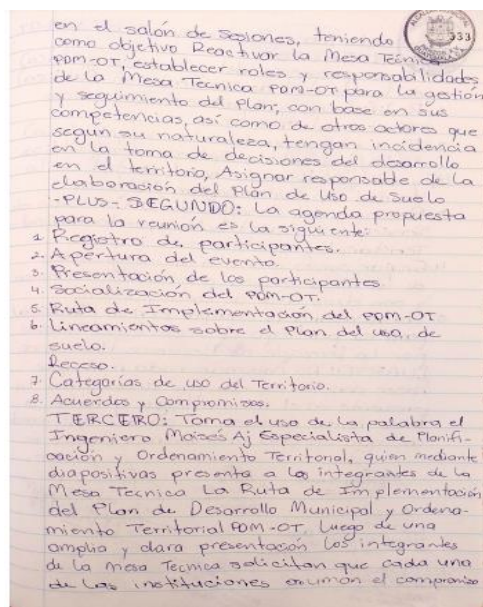 333
en el salón de sesiones, teniendo
como objetivo Reactivar la Mesa Técnica
PDM-OT, establecer roles y responsabilidades
de la Mesa Tecnica PDM-OT para la gestión
y seguimiento del Plan, con base en sus
competencias, así como de otros actores que
según su naturaleza, tengan incidencia
en la toma de decisiones del desarrollo
en el territorio, Asignar responsable de la
elaborasión del Plan de Uso de Suelo
-PLUS- SEGUNDO: La agenda propuesta
para la reunión es la siguiente:
1. Registro de participantes.
2. Apertura del evento.
3. Presentación de los participantes
4. Socialización del PDM-OT.
5. Ruta de Implementación del PDM-OT
6. Lineamientos sobre el Plan del uso, de
suelo.
Receso.
7. Categorías de uso del Territorio.
8. Acuerdos y Compromisos.
TERCERO: Toma el uso de la palabra el
Ingeniero Moisés Aj Especialista de Planifi-
cación y Ordenamiento Territorial, quien mediante
diapositivas presenta a los integrantes de la
Mesa Tecnica La Ruta de Implementación
del Plan de Desarrollo Municipal y Ordena-
miento Territorial PDM-OT, Luego de una
amplia y clara presentación los integrantes
de la Mesa Tecnica solicitan que cada una
de las instituciones asuman el compromiso